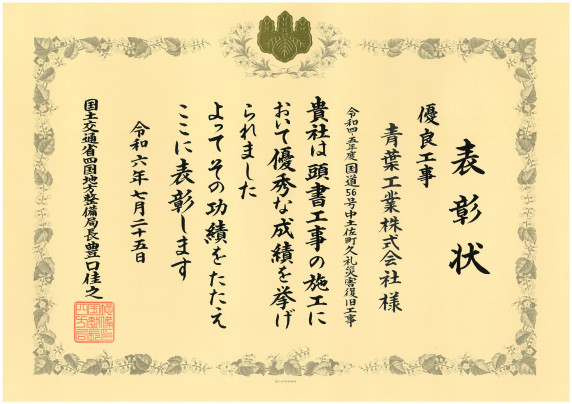 表彰状
優良工事
青葉工業株式会社様
令和四・五年度国道56号中土佐町久礼災害復旧工事
貴社は頭書工事の施工に
おいて優秀な成績を挙げ
られました
よってその功績をたたえ
ここに表彰します
令和六年七月二十五日
国土交通省四国地方整備局長豊口佳之